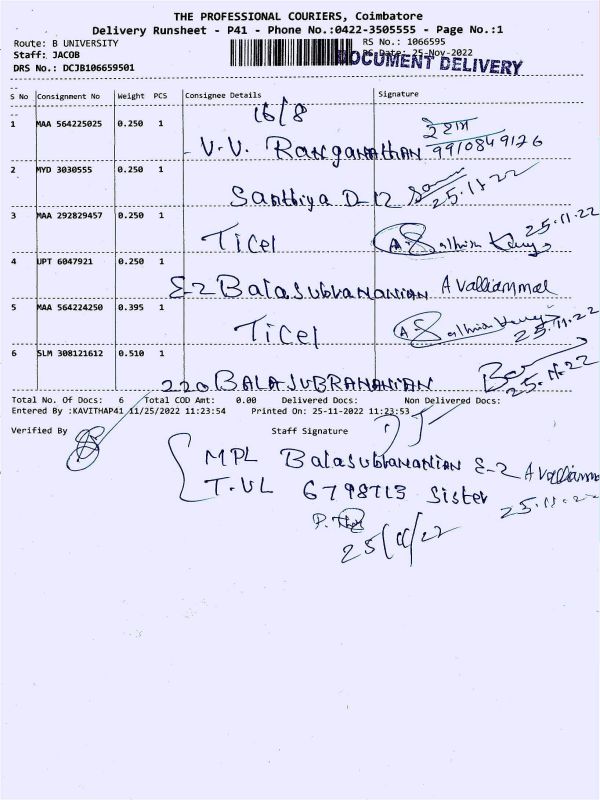 THE PROFESSIONAL COURIERS, Coimbatore
Delivery Runsheet - P41 - Phone No.:0422-3505555 - Page No.:1
Route: B UNIVERSITY
RS No.: 1066595
Staff: JACOB
RS Date: 25-Nov-2022
DOCUMENT DELIVERY
DRS No.: DCJB106659501
S No Consignment No Weight PCS Consignee Details Signature
16/8
1 MAA 564225025 0.250 1
V.V. Ranganathan 9910849126
2 MYD 3030555 0.250 1
Santhiya D-12 25.11.22
3 MAA 292829457 0.250 1
Ticel 25.11.22
4 UPT 6047921 0.250 1
E-2 Balasubramanian A valliammal
5 MAA 564224250 0.395 1
Ticel 25.11.22
6 SLM 308121612 0.510 1
220 BALASUBRAMANIAN 25.11.22
Total No. Of Docs: 6 Total COD Amt: 0.00 Delivered Docs: Non Delivered Docs:
Entered By :KAVITHAP41 11/25/2022 11:23:54 Printed On: 25-11-2022 11:23:53
Verified By Staff Signature
MPL Balasubramanian E-2 A valliamma
T.VL 6798713 Sister 25.11.22
25/11/22